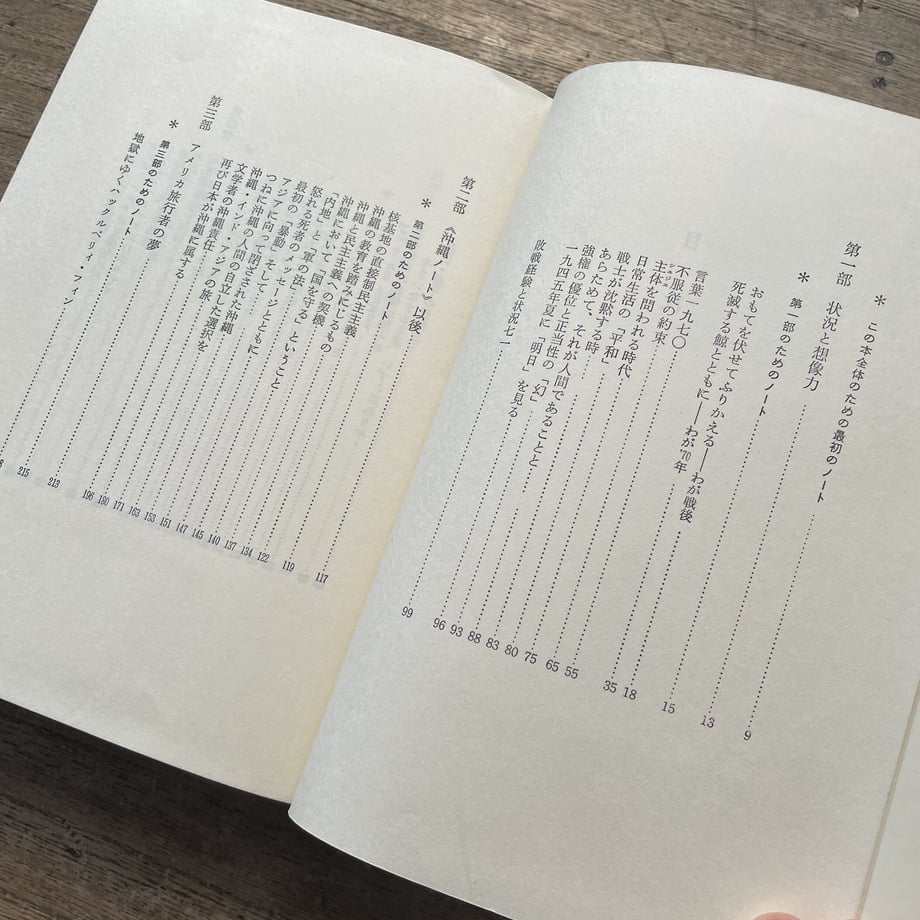 ＊ この本全体のための最初のノート……9
第一部 状況と想像力……13
＊ 第一部のためのノート……15
おもてを伏せてふりかえる――わが戦後……18
死滅する鯨とともに――わが'70年……35
言葉一九七〇……55
不服従の約束……65
主体を問われる時代……75
日常生活の「平和」……80
戦士が沈黙する時……83
あらためて、それが人間であることと……88
強権の優位と正当性の「幻」……93
一九四五年夏に「明日」を見る……96
敗戦経験と状況七一……99
第二部 《沖縄ノート》以後……117
＊ 第二部のためのノート……119
核基地の直接制民主主義……122
沖縄の教育を踏みにじるもの……134
沖縄と民主主義への契機……137
沖縄において「国を守る」ということ……140
「内地」と「軍の法」……145
怒れる死者のメッセージとともに……147
最初の「暴動」……151
アジアに向って閉ざされた沖縄……153
つねに沖縄の人間の自立した選択を……163
沖縄・インド・アジアの旅……171
文学者の沖縄責任……180
再び日本が沖縄に属する……196
第三部 アメリカ旅行者の夢……213
＊ 第三部のためのノート……215
地獄にゆくハックルベリィ・フィン……